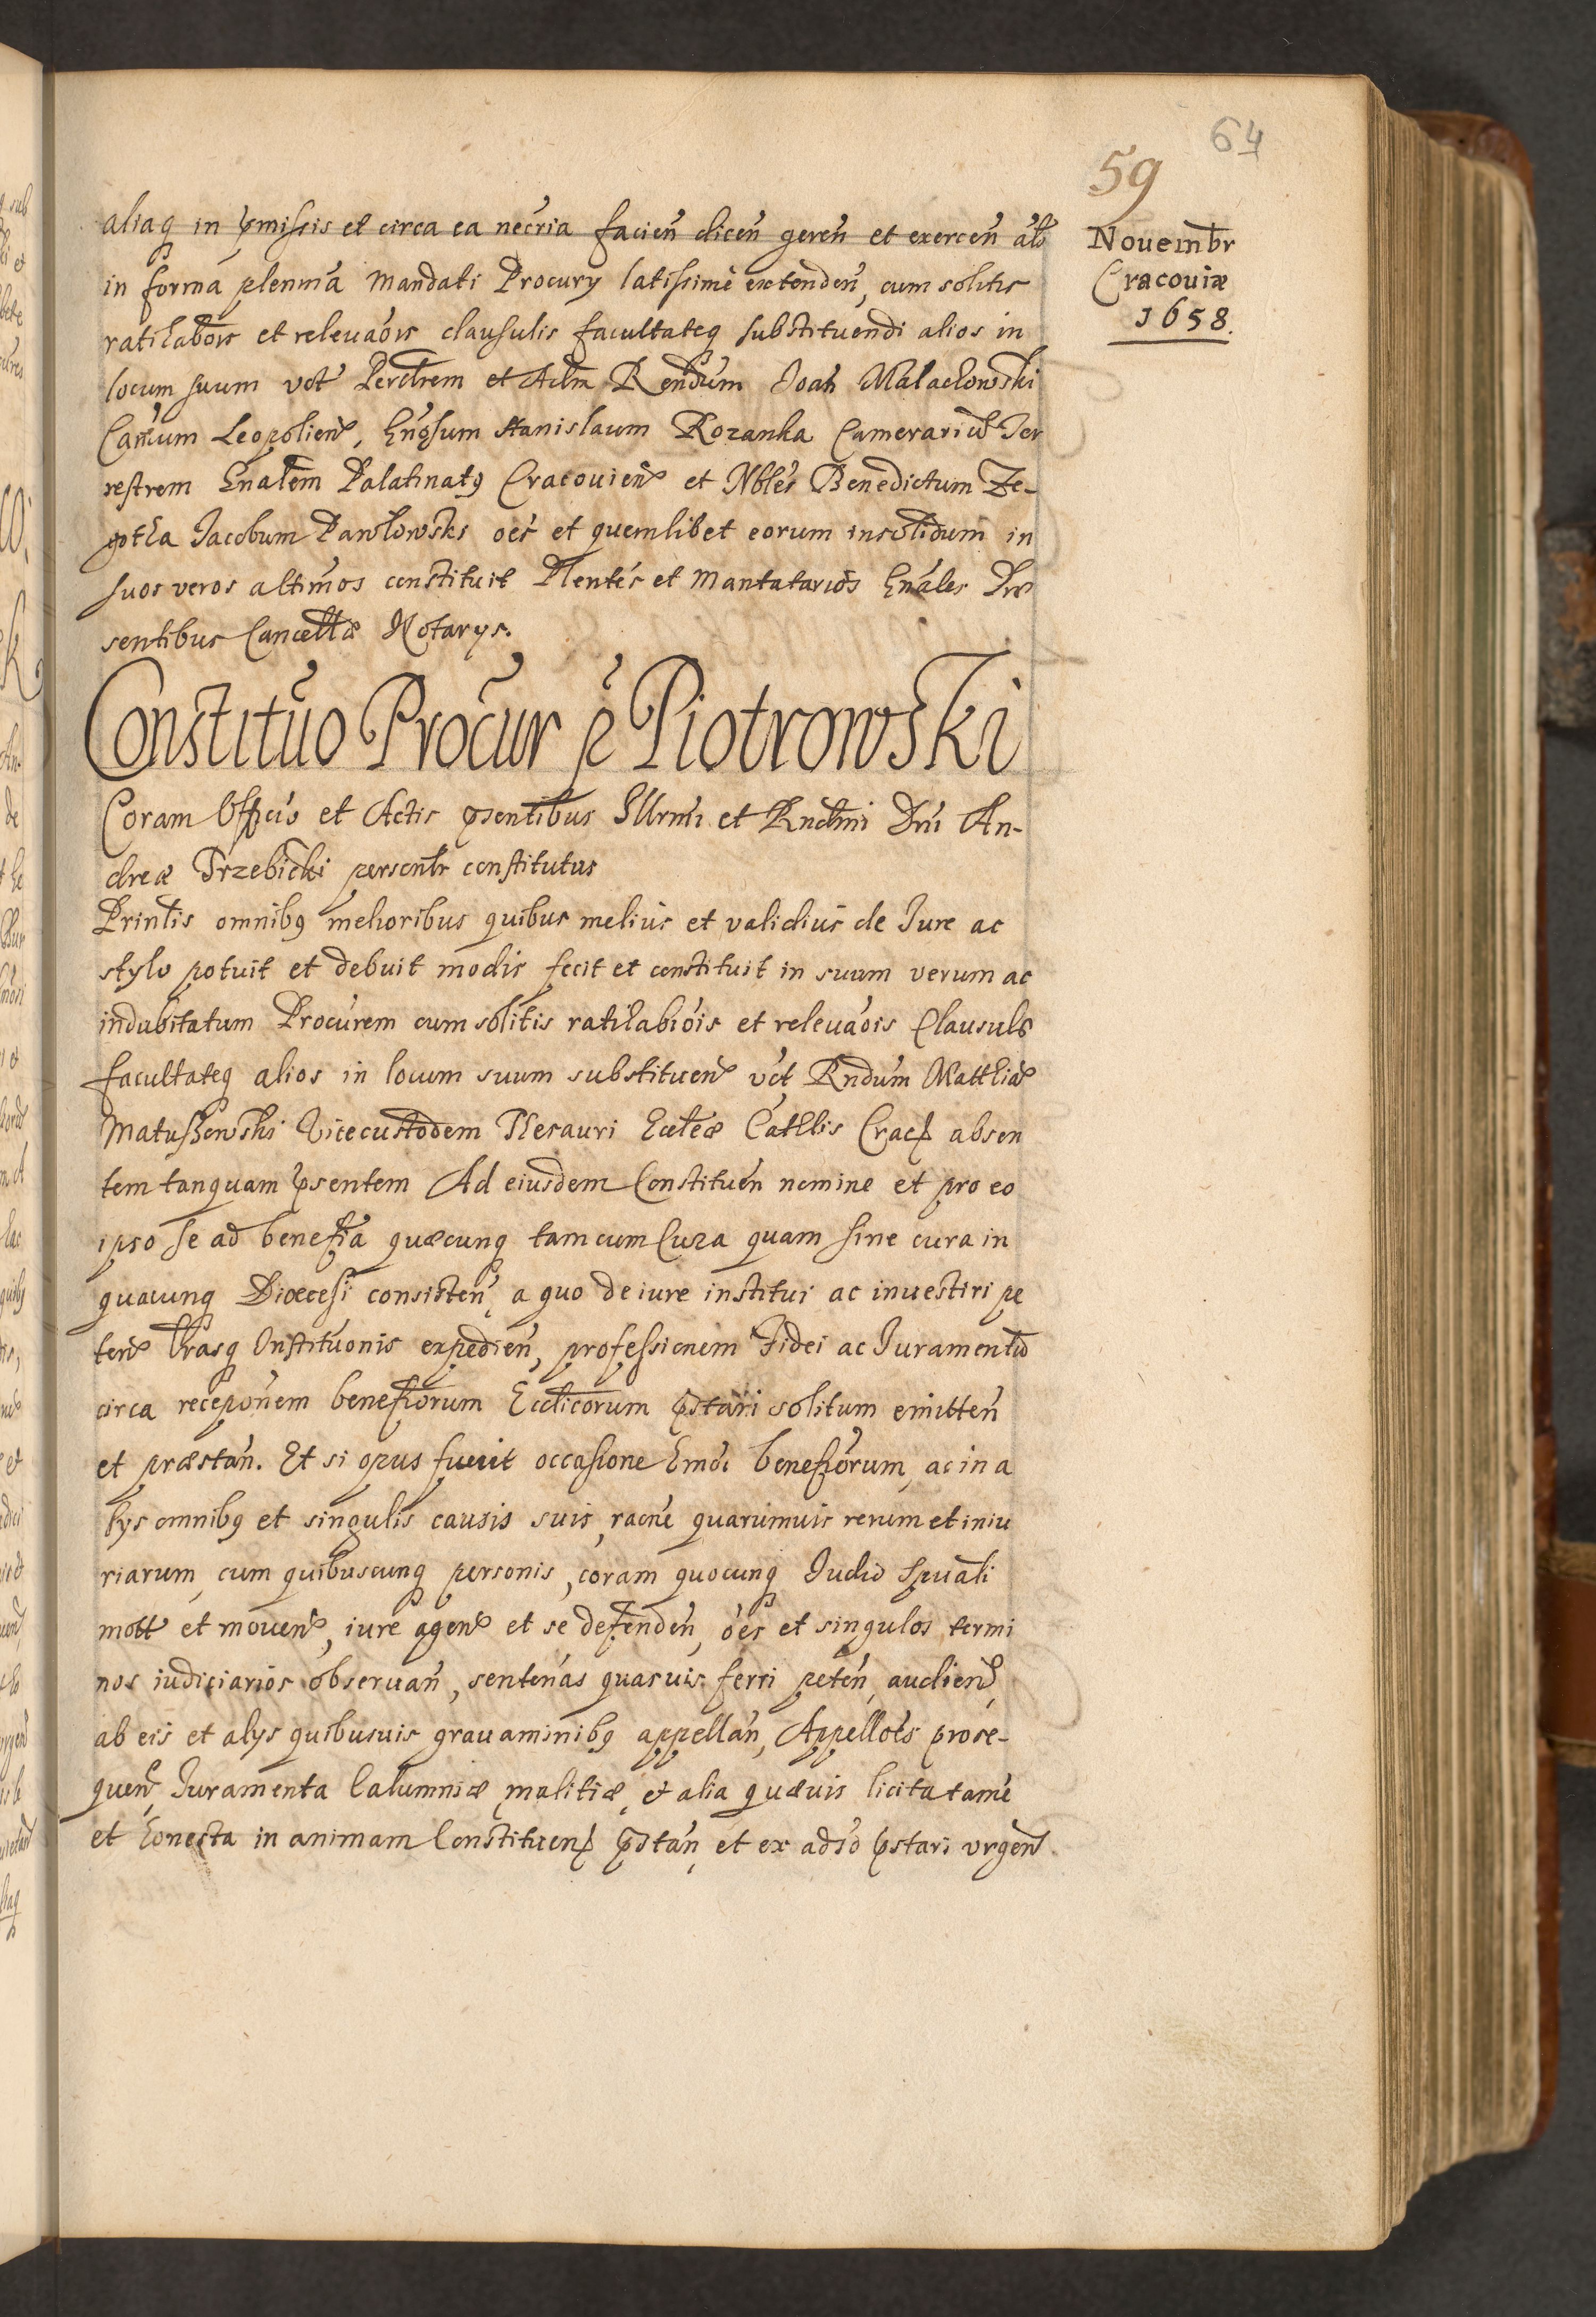 64
59
Nouembr
Cracouiæ
1658.
aliaq in pmissis et circa ea necria facien dicen geren et exercen als
in forma plenma Mandati Procury latissime extenden, cum solitis
ratihabois et releuaois clausulis facultateq substituendi alios in
locum suum vct Perclrem et Adm Rendum Joan Malachowski
Canum Leopolien, Gnosum Stanislaum Rozanka Camerariu Ter
restrem Gnalem Palatinatq Cracouien et Nbles Benedictum Ze-
gotha Jacobum Pawlowski oes et quemlibet eorum insolidum in
suos veros altimos constituit Plentes et Mantatarios Gnales Præ
sentibus Cancellæ Notarys.
Constituo Procur p Piotrowski
Coram Officio et Actis psentibus Illrmi et Rndmi Dni An-
dreæ Trzebicki personlr constitutus
Printis omnibq melioribus quibus melius et validius de Jure ac
stylo potuit et debuit modis fecit et constituit in suum verum ac
indubitatum Procurem cum solitis ratihabiois et releuaois Clausulis
facultateq alios in locum suum substituen vct Rndum Matthia
Matuszewski Vicecustodem Thesauri Ecclæ Cathlis Crac absen
tem tanquam psentem Ad eiusdem Constituen nomine et pro eo
ipso se ad benefia quæcunq tam cum Cura quam sine cura in
quacunq Diœcesi consisten, a quo de iure institui ac inuestiri pe
ten lrasq Instituonis expedien, professionem Fidei ac Juramentu
circa receponem benefiorum Ecclicorum pstari solitum emitten
et præstan. Et si opus fuerit occasione hmoi benefiorum, ac in a
lys omnibq et singulis causis suis, raone quarumuis rerum et iniu
riarum, cum quibuscunq personis, coram quocunq Judio Spuali
mott et mouen, iure agen et se defenden, oes et singulos termi
nos iudiciarios obseruan, sentenas quasuis ferri peten, audien,
ab eis et alys quibusuis grauaminibq appellan, Appellois prose-
quen, Juramenta Calumniæ malitiæ, et alia quæuis licita tame
et honesta in animam Constituen pstan, et ex adso pstari vrgen